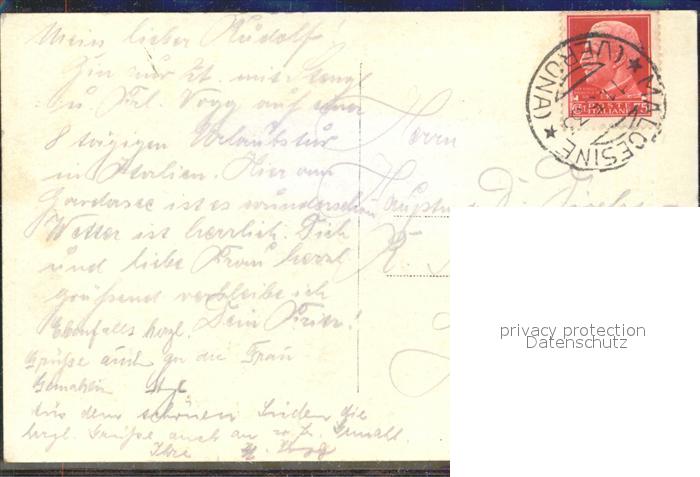 Mein lieber Rudolf!
Bin zur Zt. mit Stengl
u. Frl. Vogg auf einer
8 tägigen Urlaubstur
in Italien. Hier am
Gardasee ist es wunderschön
Wetter ist herrlich. Dich
und liebe Frau herzl
grüßend verbleibe ich
Dein Fritz!
Ebenfalls herzl.
Grüße auch an die Frau
Gemahlin
Aus dem schönen Süden die
herzl. Grüße auch an
Ihre
Herrn
Hauptm
MALCESINE
★ (VERONA) ★
POSTE
ITALIANE
75
privacy protection
Datenschutz